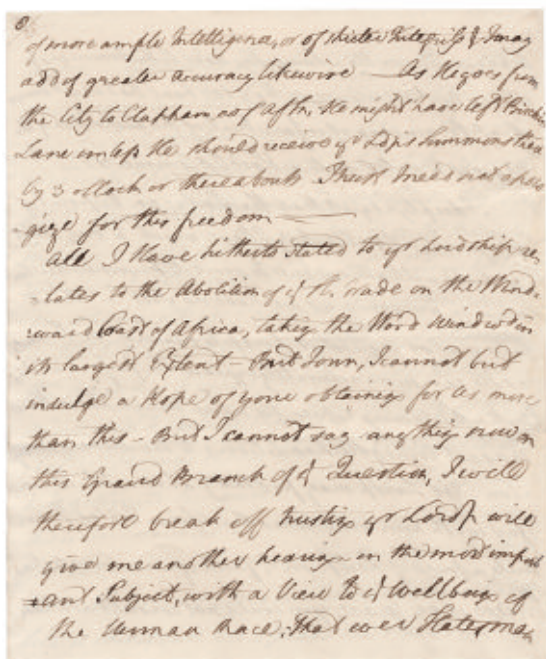 of more ample Intelligence, or of stricter Integrity & I may
add of greater accuracy likewise — As He goes from
the City to Clapham as of Aftn, He might have left Birchin
Lane unless He should receive yr Ldp's Summons there
by 3 oClock or thereabouts I trust I need not apolo
-gize for this freedom —
all I Have hitherto stated to yr Lordship re
-lates to the Abolition of ye Sl. Trade on the Wind-
ward Coast of Africa, taking the Word Windwd in
its largest Extent - But I own, I cannot but
indulge a Hope of your obtaining for us more
than this - But I cannot say anything now on
this Grand Branch of ye Question, I will
therefore break off trusting yr Lordp will
give me another hearing on the most import
-ant Subject, with a View to ye Wellbeing of
the Human Race, That ever Statesman